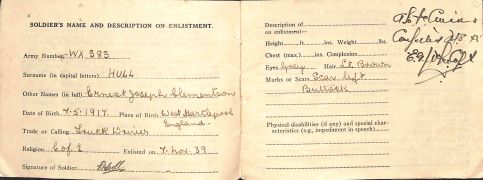 4
SOLDIER'S NAME AND DESCRIPTION ON ENLISTMENT.
Army Number WX 383
Surname (in capital letters) HULL
Other Names (in full) Ernest Joseph Clementson
Date of Birth 7.5.1917. Place of Birth West Hartlepool
England.
Trade or Calling Truck Driver
Religion C of E Enlisted on 7. Nov. 39
Signature of Soldier EHull
Description of
on enlistment—
Height ft. ins. Weight lbs.
Chest (max.) ins. Complexion
Eyes Grey Hair Lt. Brown
Marks or Scars Scar left
Buttock
Physical disabilities (if any) and special char-
acteristics (e.g., impediment in speech)